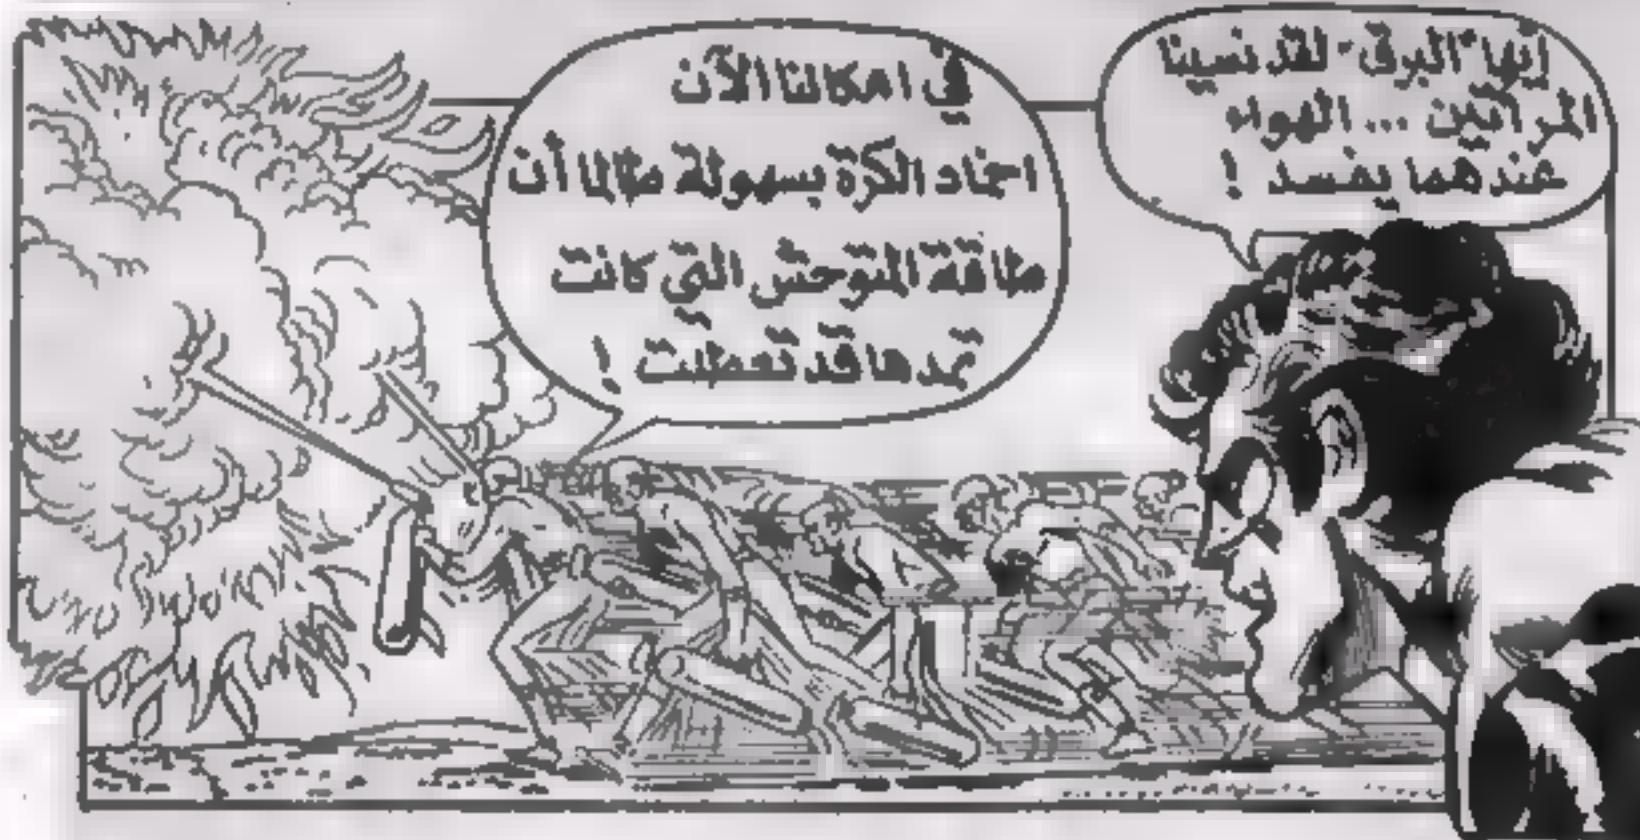 إنها "البرق" لقد نسينا
المرآتين ... الهواء
عندهما يفسد !
في امكاننا الآن
اخماد الكرة بسهولة طالما أن
طاقة المتوحش التي كانت
تمدها قد تعطلت !